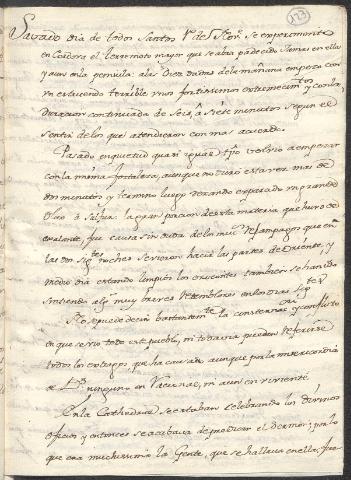 173
Savado dia de todos Santos 1º de Nov.e se experimento
en Cordova el terremoto mayor que se abra padecido jamas en ella
y aun en la peninsula: a las Diez dadas de la mañana empezo con
un estruendo terrible, unos fortissimos extremecim.tos y con la
duracion continuada de seis, a siete minutos segun el
sentir de los que atendieron con mas acuerdo.
Pasado en quietud quasi igual tpo volvio a empezar
con la misma fortaleza, aunque no duro esta vez mas de
dos minutos y termino luego dexando esparcido un grande
olor a Salfue: la gran porcion de esta materia que huvo de
exalarse, fue causa sin duda de los muchos relampagos que en
las dos sig.tes noches se vieron hacia las partes de Oriente, y
medio dia estando limpios los orizontes tambien se han ido
sintiendo algs muy breves temblores en los dias sig.tes
No se puede decir bastantem.te la consternacion y conflicto
en que se vio todo este pueblo, ni todavia pueden referirse
todos los estragos, que ha causado aunque por la misericordia
de Ds ninguno en racional, ni aun en viviente.
En la Cathedral se estaban celebrando los divinos
oficios y entonces se acababa de predicar el sermon: por lo
que era muchissima la Gente, que se hallava en ella; fue